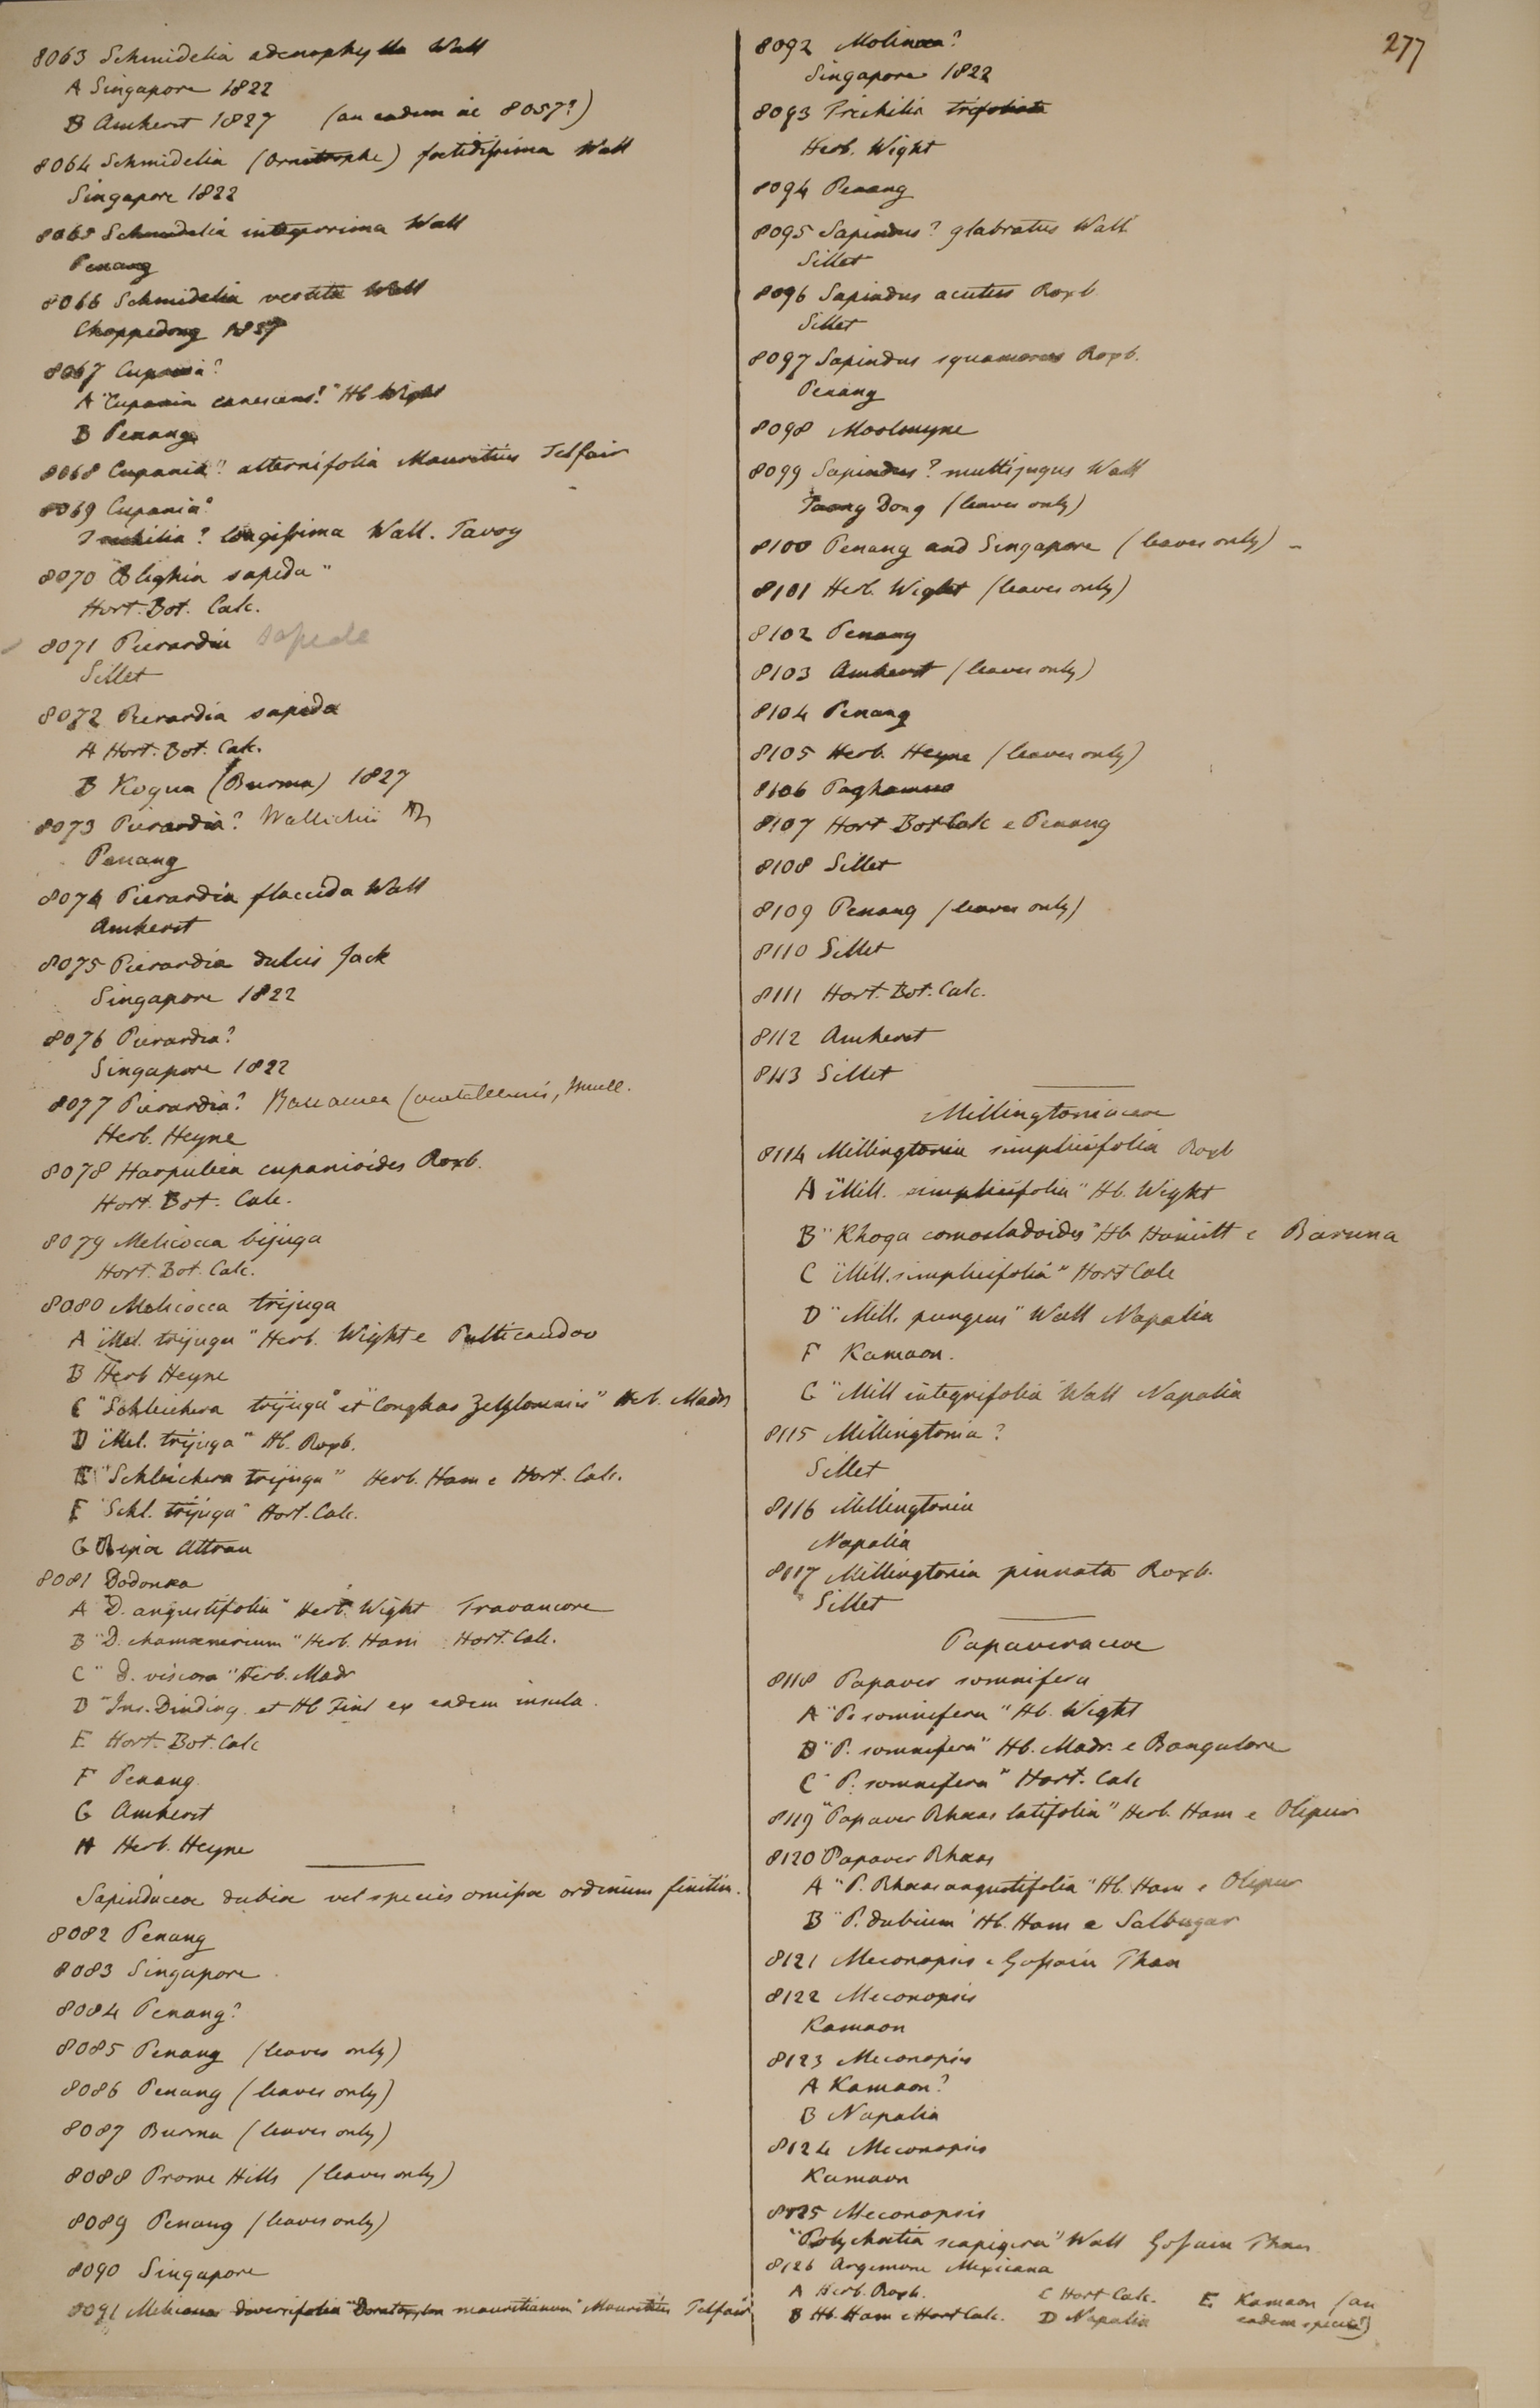 277
8063 Schmidelia adenophylla Wall
A Singapore 1822
B Amherst 1827 (an eadem ac 8057?)
8064 Schmidelia (Ornitrophe) foetidissima Wall
Singapore 1822
8065 Schmidelia integerrima Wall
Penang
8066 Schmidelia vestita Wall
Choppedong
8067 Cupania?
A "Cupania canescens?" Hb Wight
B Penang
8068 Cupania? alternifolia Mauritius Telfair
8069 Cupania?
Trichilia? longissima Wall. Tavoy
8070 "Blighia sapida"
Hort. Bot. Calc.
8071 Pierardia sapida
Sillet
8072 Pierardia sapida
A Hort. Bot. Calc.
B Kogua (Burma) 1827
8073 Pierardia? Wallichii
Penang
8074 Pierardia flaccida Wall
Amherst
8075 Pierardia dulcis Jack
Singapore 1822
8076 Pierardia?
Singapore 1822
8077 Pierardia? Baccaurea courtallensis, Muell.
Herb. Heyne
8078 Harpulia cupanioides Roxb.
Hort. Bot. Calc.
8079 Melicocca bijuga
Hort. Bot. Calc.
8080 Melicocca trijuga
A "Mel. trijuga" Herb. Wight e
B Herb Heyne
C "Schleichera trijuga" et "Conghas Zeylonensis" Herb. Madr
D "Mel. trijuga" Hb. Roxb.
E "Schleichera trijuga" Herb. Ham e Hort. Calc.
F "Schl. trijuga" Hort. Calc.
G Ripa Attran
8081 Dodonæa
A "D. angustifolia" Herb. Wight Travancore
B "D. chamænerium" Herb. Ham Hort. Calc.
C "D. viscosa" Herb. Madr
D "Ins. Dinding. et Hb Finl ex eadem insula.
E Hort. Bot. Calc
F Penang
G Amherst
H Herb. Heyne
Sapindaceæ dubiæ vel species omissæ ordinum finitim.
8082 Penang
8083 Singapore
8084 Penang?
8085 Penang (leaves only)
8086 Penang (leaves only)
8087 Burma (leaves only)
8088 Prome Hills (leaves only)
8089 Penang (leaves only)
8090 Singapore
8091 Melicocca diversifolia "Doratoxylon mauritianum" Mauritius Telfair
8092 Molinæa?
Singapore 1822
8093 Trichilia trifoliata
Herb. Wight
8094 Penang
8095 Sapindus? glabratus Wall
Sillet
8096 Sapindus acutus Roxb
Sillet
8097 Sapindus squamosus Roxb.
Penang
8098 Moolmyne
8099 Sapindus? multijugus Wall
Taong Dong (leaves only)
8100 Penang and Singapore (leaves only) -
8101 Herb. Wight (leaves only)
8102 Penang
8103 Amherst (leaves only)
8104 Penang
8105 Herb. Heyne (leaves only)
8106 Paghamew
8107 Hort Bot Calc e Penang
8108 Sillet
8109 Penang (leaves only)
8110 Sillet
8111 Hort. Bot. Calc.
8112 Amherst
8113 Sillet
Millingtoniaceæ
8114 Millingtonia simplicifolia Roxb
A "Mill. simplicifolia" Hb. Wight
B "Rhoga comosladoides" Hb Hamilt e Baruna
C "Mill. simplicifolia" Hort Calc
D "Mill. pungens" Wall Napalia
F Kamaon.
G "Mill integrifolia Wall Napalia
8115 Millingtonia?
Sillet
8116 Millingtonia
Napalia
8117 Millingtonia pinnata Roxb.
Sillet
Papaveraceæ
8118 Papaver somnifera
A "P. somnifera" Hb. Wight
B "P. somnifera" Hb. Madr. e Bangalore
C "P. somnifera" Hort. Calc
8119 "Papaver Rhæas latifolia" Herb. Ham e Olipur
8120 Papaver Rhæas
A "P. Rhæas angustifolia" Hb. Ham e Olipur
B "P. dubium" Hb. Ham e Salbugar
8121 Meconopsis e Gossain Than
8122 Meconopsis
Kamaon
8123 Meconopsis
A Kamaon?
B Napalia
8124 Meconopsis
Kamaon
8125 Meconopsis
"Polychætia scapigera" Wall Gossain Than
8126 Argemone Mexicana
A Herb. Roxb. C Hort Calc. E Kamaon (an
B Hb. Ham e Hort Calc. D Napalia eadem species?)